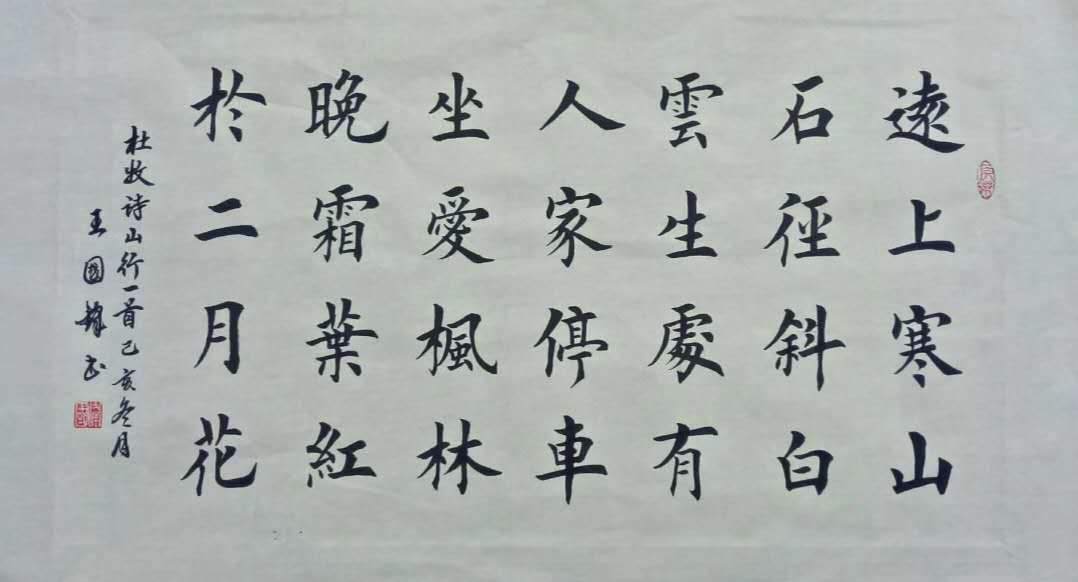 遠上寒山
石徑斜白
雲生處有
人家停車
坐愛楓林
晚霜葉紅
於二月花
杜牧诗山行一首己亥冬月
王國锋书